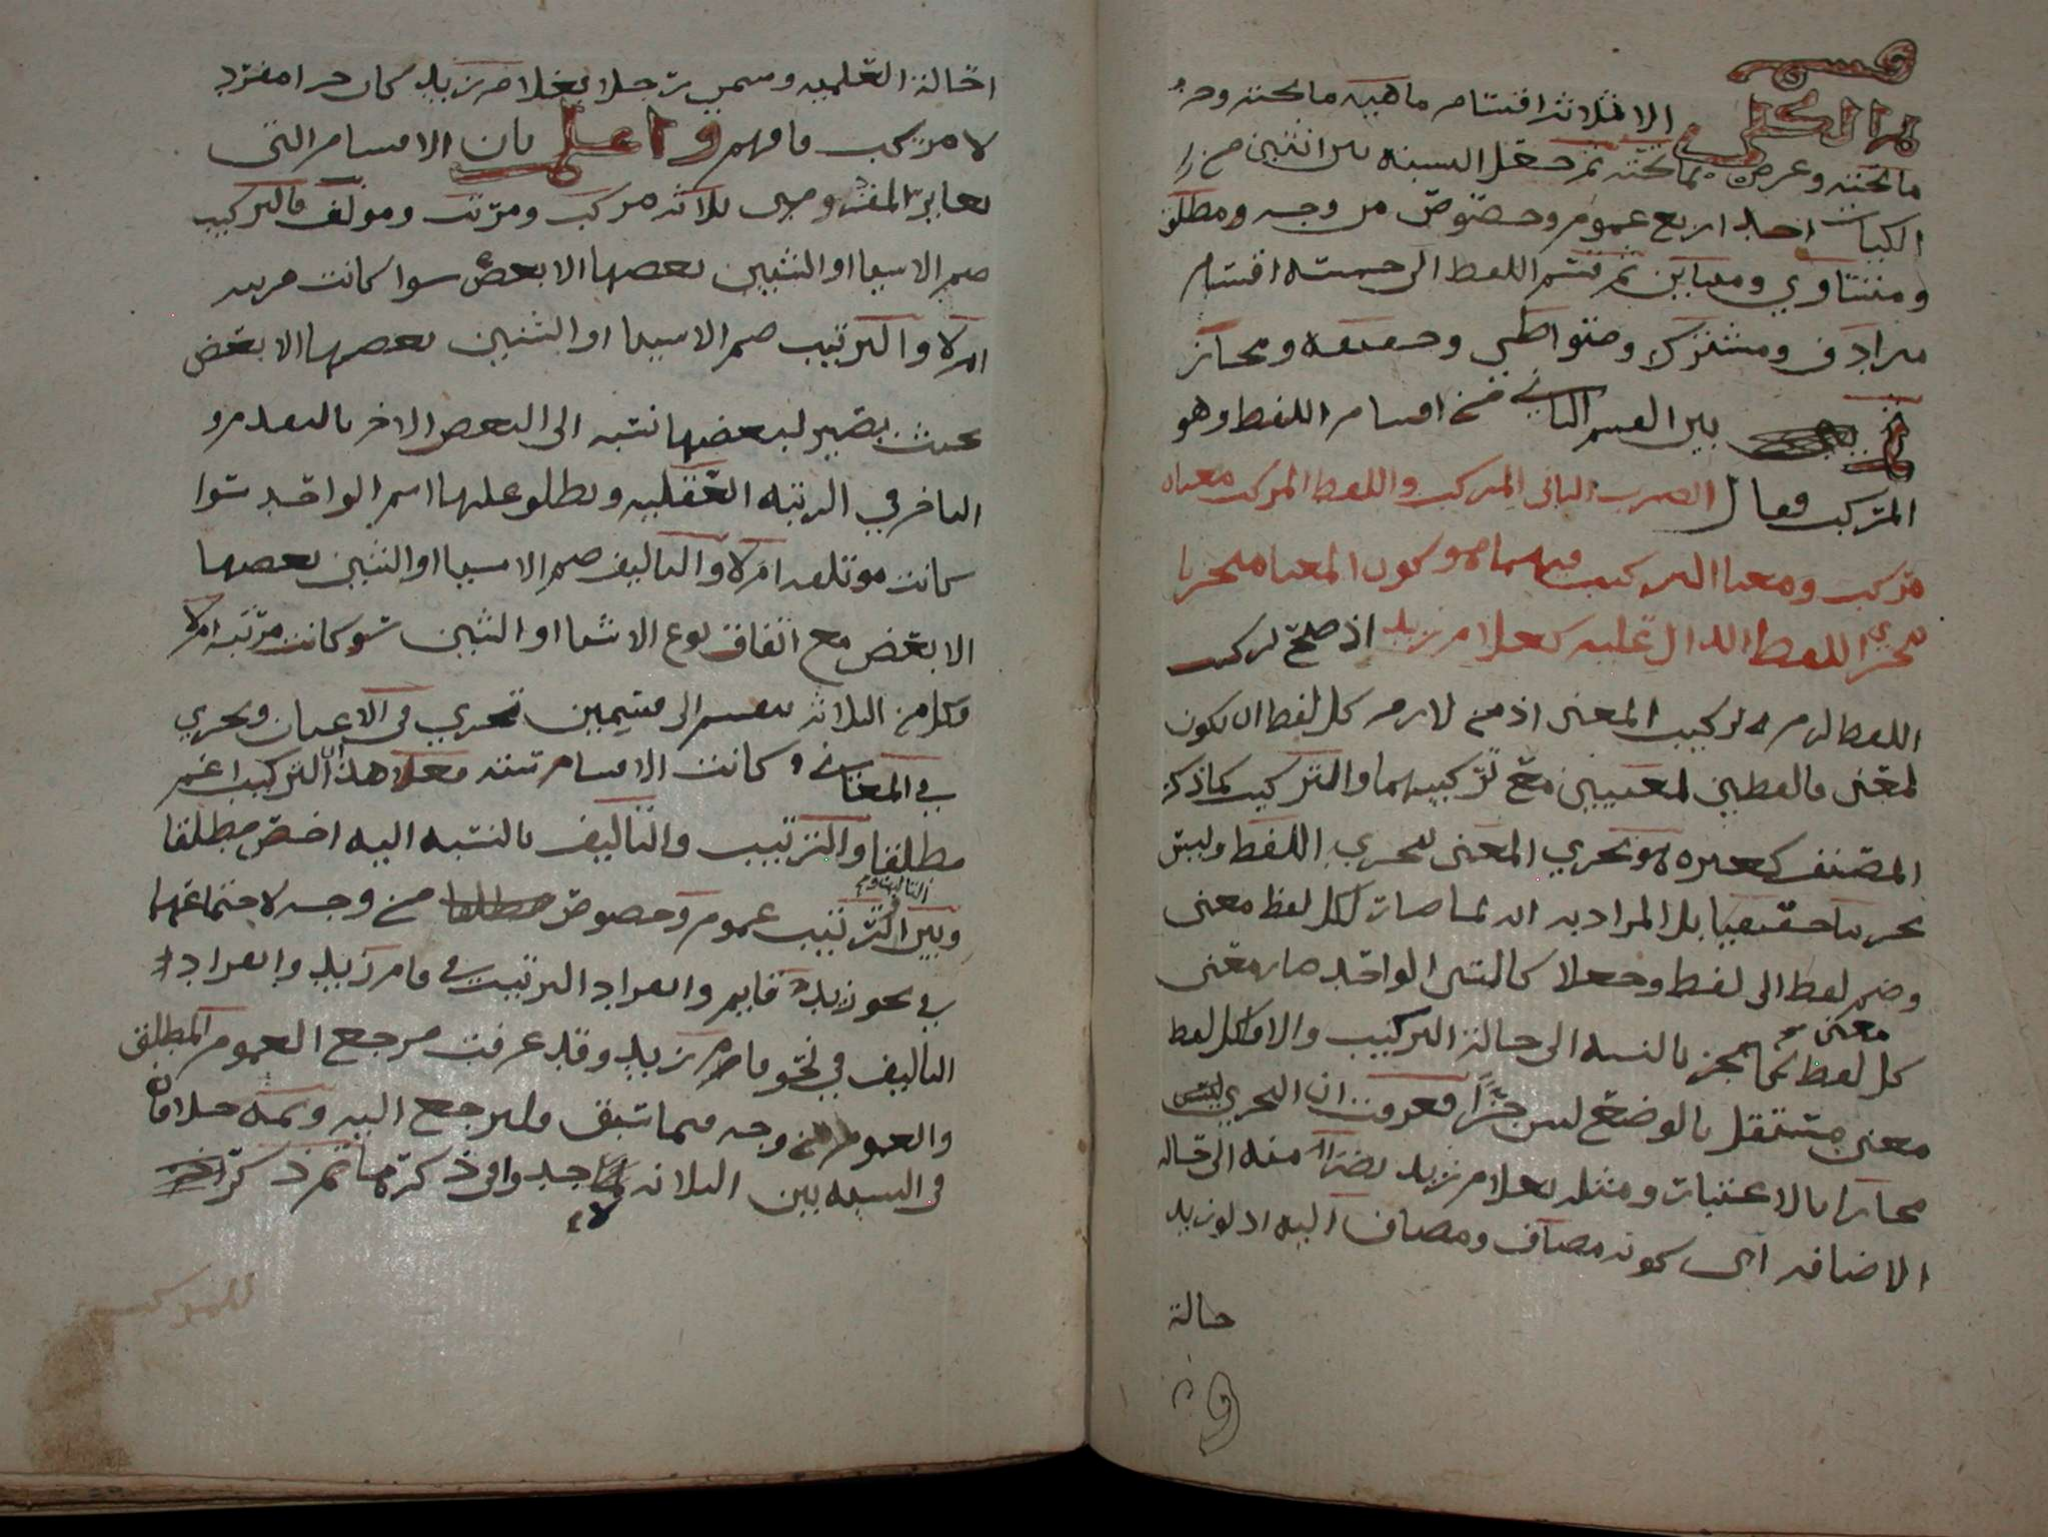 قسم
هذا الكلي
الا ثلاثة اقسام ماهيه ماتحته وجزء
ماتحته وعرض بماتحته ثم جعل النسبه بين اثنين من
الكليات احد اربع عموم وخصوص من وجه ومطلق
ومتساوي ومتباين ثم قسم اللفظ الى خمسه اقسام
مرادف ومشترك ومتواطي وحقيقه ومجاز
بين القسم الثاني من اقسام اللفظ وهو
المركب فقال الضرب الثاني المركب واللفظ المركب معناه
مركب ومعنا التركيب فيهما هو كون المعنا متجزيا
بتجزي اللفظ الدال عليه كغلام زيد اذ صلح تركيب
اللفظ لزم له تركيب المعنى اذ من لازم كل لفظ ان يكون
لمعنى فالفظين لمعنيين مع تركيبهما والتركيب كما ذكر
المصنف كغيره هو تجزي المعنى بتجزي اللفظ وليس
تجزيا حقيقيا بل المراد به انه لما صار لكل لفظ معنى
وضم لفظ الى لفظ وجعلا كالشي الواحد صار معنى
معنى
كل لفظ كالجز بالنسبه الى حالة التركيب والا فكل لفظ
معنى مستقل بالوضع ليس جزأ فعرفت ان التجزي ليس
مجازا بالاعتبار ومثله بغلام زيد نضرا منه الى حاله
الاضافه اي كونه مضاف ومضاف اليه اذ لو زيد
حالة
احالة العلميه وسمي رجلا بغلام زيد كان مفرد
لا مركب فافهم واعلم بان الاقسام التي
تغاير المفرد وهي ثلاثه مركب ومرتب ومولف فالتركيب
ضم الاشيا او الشيين بعضها الا بعض سوا كانت مرتبه
ام لا والترتيب ضم الاشيا او الشيين بعضها الا بعض
بحيث يصير لبعضها نسبه الى البعض الاخر بالتقدم و
التاخر في الرتبه العقليه ويطلق عليها اسم الواحد سوا
كانت موتلفه ام لا والتاليف ضم الاشيا او الشيين بعضها
الا بعض مع اتفاق نوع الاشيا او الشيين سوا كانت مرتبه ام لا
فكل من الثلاثه ينقسم الى قسمين تجري في الاعيان وتجري
في المعاني وكانت الاقسام سته فعلا هذا التركيب اعم
مطلقا والترتيب والتاليف بالنسبه اليه اخص مطلقا
التاليف و
وبين الترتيب عموم وخصوص من وجه لاجتماعهما
في نحو زيد قايم وانفراد الترتيب في قام زيد وانفراد
التاليف في نحو قام زيد وقد عرفت مرجع العموم المطلق
والعموم من وجه مما سبق فليرجع اليه وثمه خلاف
في النسبه بين الثلاثه لا جدوى في ذكرها ثم ذكر
للمركب